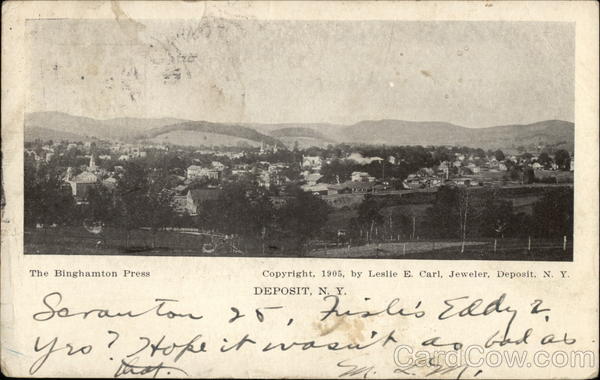 The Binghamton Press
Copyright, 1905, by Leslie E. Carl, Jeweler, Deposit, N. Y.
DEPOSIT, N. Y.
Scranton 25, Fislis Eddy 2
Yes? Hope it wasn't as bad as
that. M. L. M.
CardCow.com